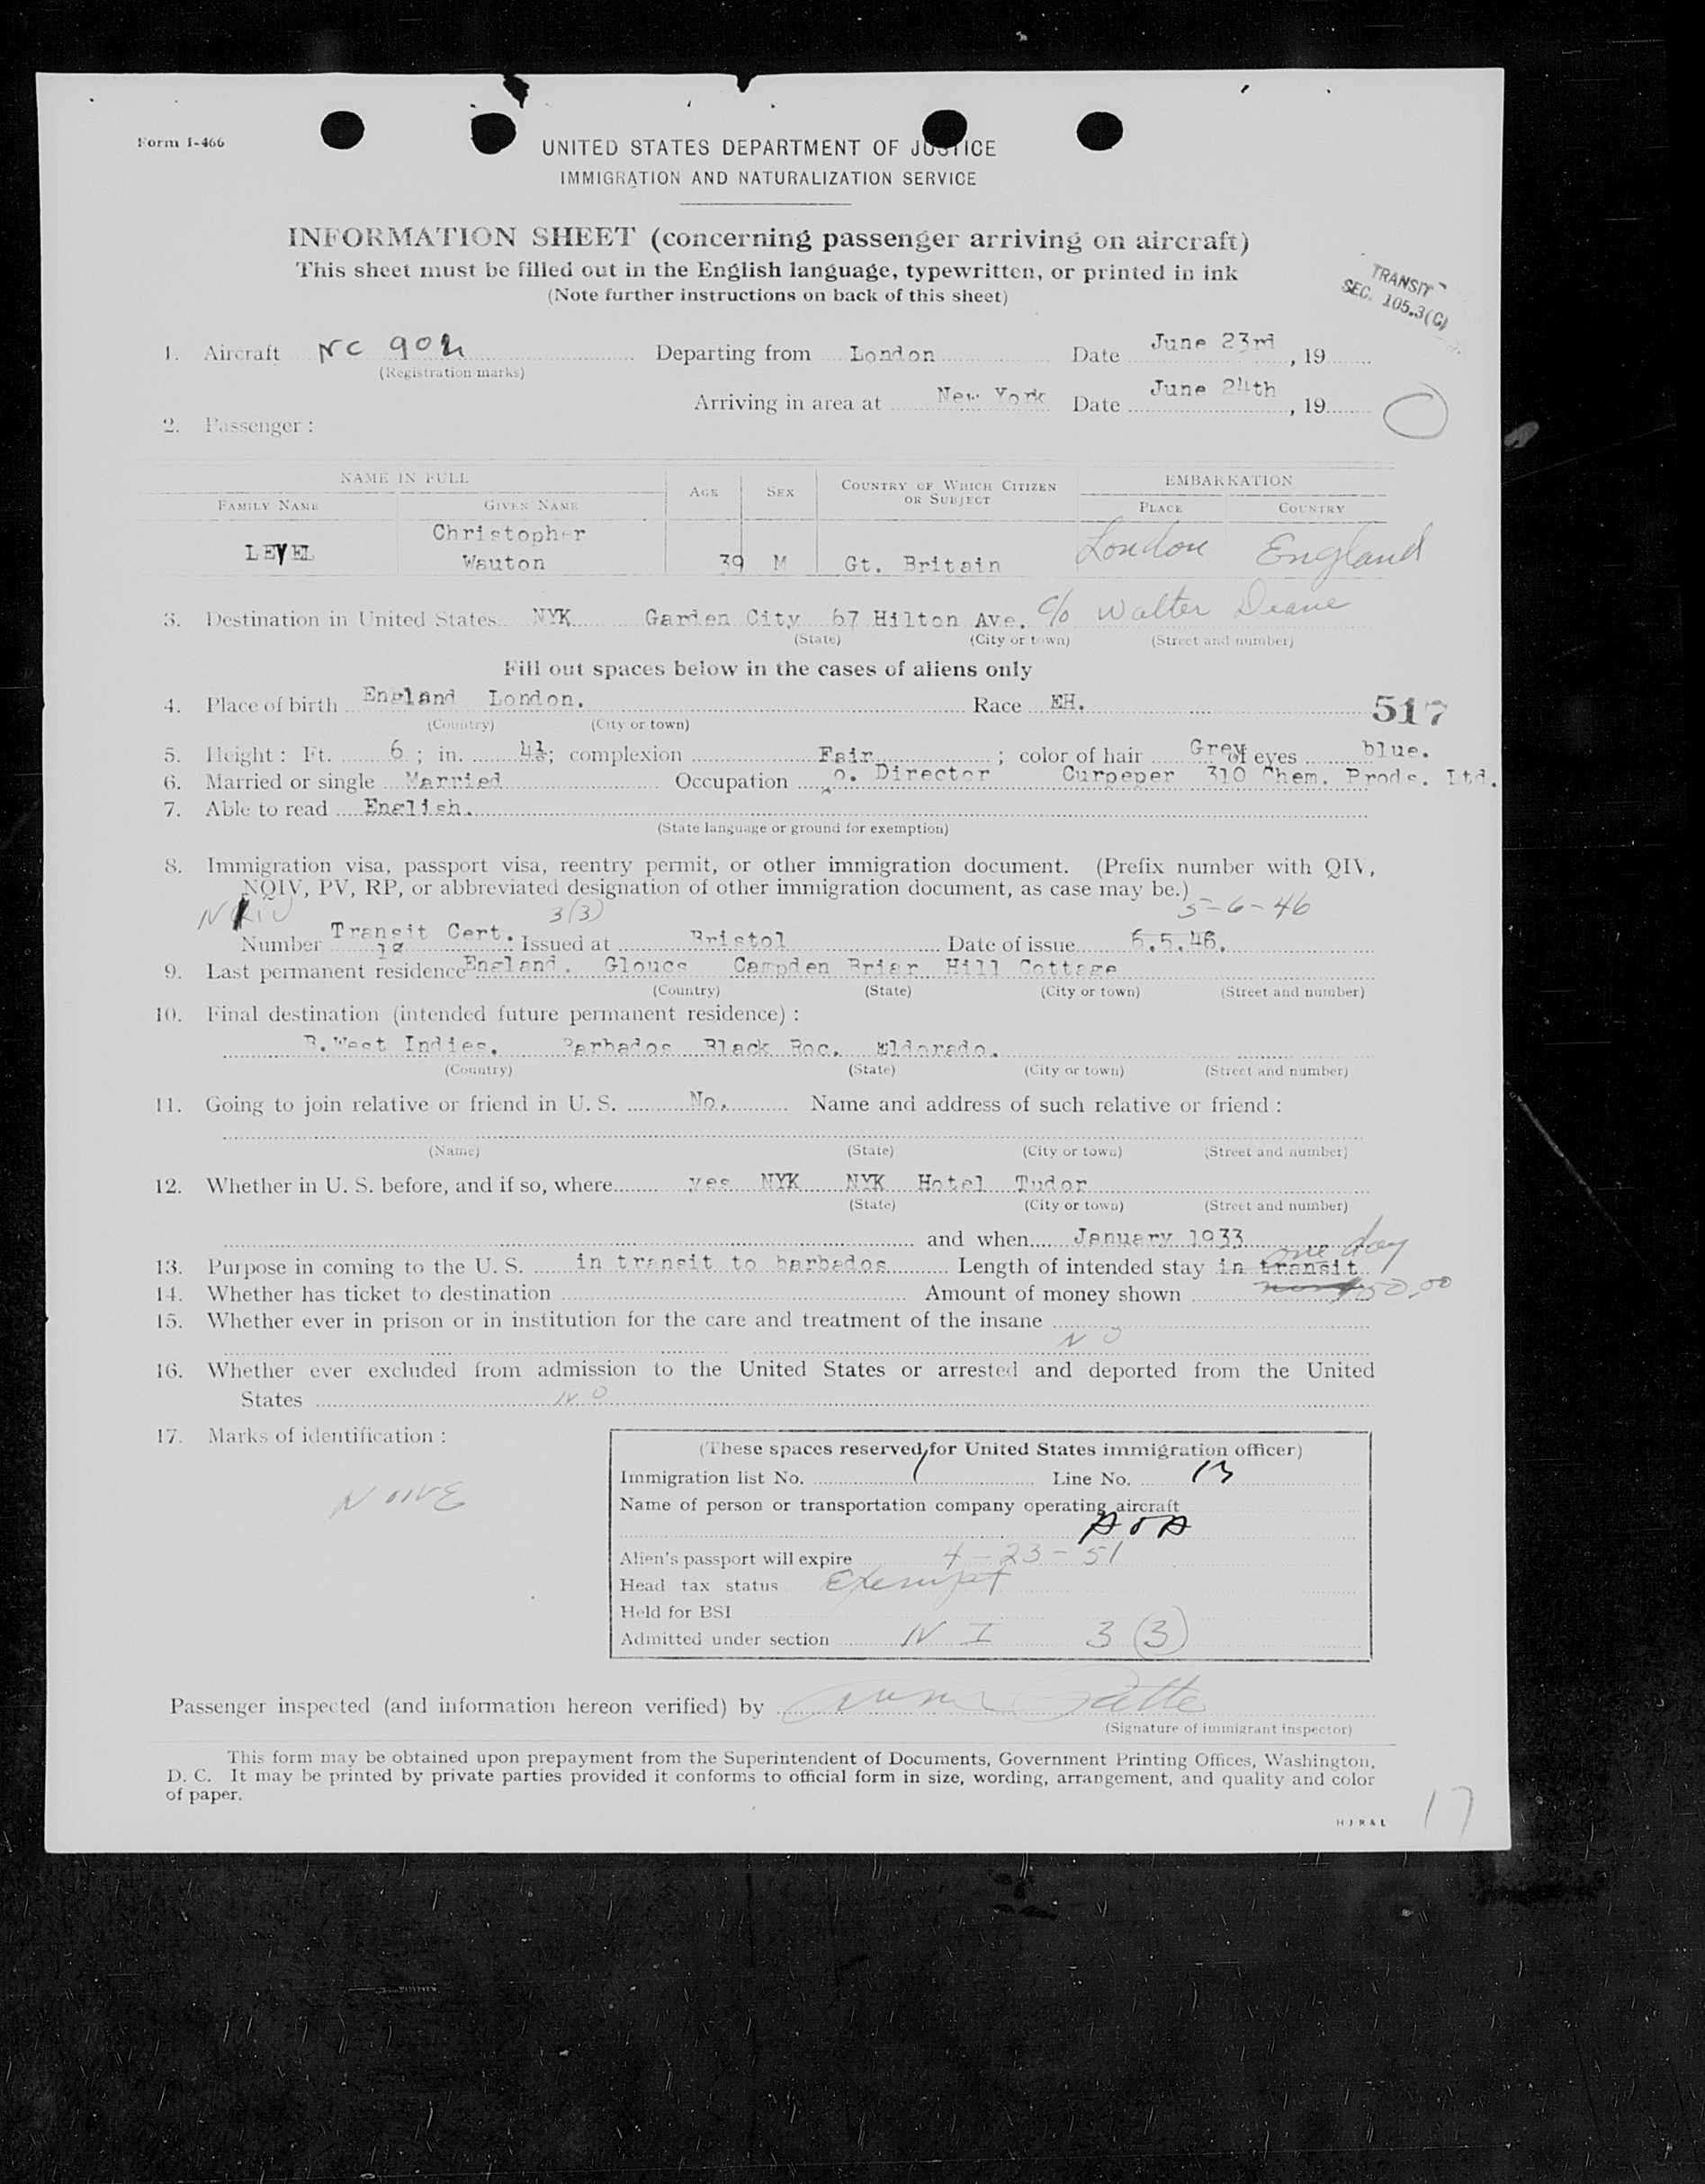 Form I-466
UNITED STATES DEPARTMENT OF JUSTICE
IMMIGRATION AND NATURALIZATION SERVICE
INFORMATION SHEET (concerning passenger arriving on aircraft)
This sheet must be filled out in the English language, typewritten, or printed in ink
(Note further instructions on back of this sheet)
TRANSIT
SEC. 105.3(C)
1. Aircraft NC 902 Departing from London Date June 23rd, 19
(Registration marks)
Arriving in area at New York Date June 24th, 19
2. Passenger:
NAME IN FULL AGE SEX COUNTRY OF WHICH CITIZEN OR SUBJECT EMBARKATION
FAMILY NAME GIVEN NAME PLACE COUNTRY
LEVEL Christopher Wauton 39 M Gt. Britain London England
3. Destination in United States NYK Garden City 67 Hilton Ave. c/o Walter Deane
(State) (City or town) (Street and number)
Fill out spaces below in the cases of aliens only
4. Place of birth England London. Race EH. 517
(Country) (City or town)
5. Height: Ft. 6; in. 4½; complexion Fair; color of hair Grey of eyes blue.
6. Married or single Married Occupation o. Director Curpeper 310 Chem. Prods. Ltd.
7. Able to read English.
(State language or ground for exemption)
8. Immigration visa, passport visa, reentry permit, or other immigration document. (Prefix number with QIV,
NQIV, PV, RP, or abbreviated designation of other immigration document, as case may be.)
3(3) 5-6-46
Number Transit Cert. 18 Issued at Bristol Date of issue 6.5.46.
9. Last permanent residence England. Gloucs Campden Briar Hill Cottage
(Country) (State) (City or town) (Street and number)
10. Final destination (intended future permanent residence):
B.West Indies. Barbados Black Roc. Eldorado.
(Country) (State) (City or town) (Street and number)
11. Going to join relative or friend in U. S. No. Name and address of such relative or friend:
(Name) (State) (City or town) (Street and number)
12. Whether in U. S. before, and if so, where yes NYK NYK Hotel Tudor
(State) (City or town) (Street and number)
and when January 1933
one day
13. Purpose in coming to the U. S. in transit to barbados Length of intended stay in transit
14. Whether has ticket to destination Amount of money shown 50.00
15. Whether ever in prison or in institution for the care and treatment of the insane
NO
16. Whether ever excluded from admission to the United States or arrested and deported from the United
States NO
17. Marks of identification:
NONE
(These spaces reserved for United States immigration officer)
Immigration list No. 1 Line No. 13
Name of person or transportation company operating aircraft
AOA
Alien's passport will expire 4-23-51
Head tax status Exempt
Held for BSI
Admitted under section NI 3(3)
Passenger inspected (and information hereon verified) by
(Signature of immigrant inspector)
This form may be obtained upon prepayment from the Superintendent of Documents, Government Printing Offices, Washington,
D. C. It may be printed by private parties provided it conforms to official form in size, wording, arrangement, and quality and color
of paper.
HJR&L
17